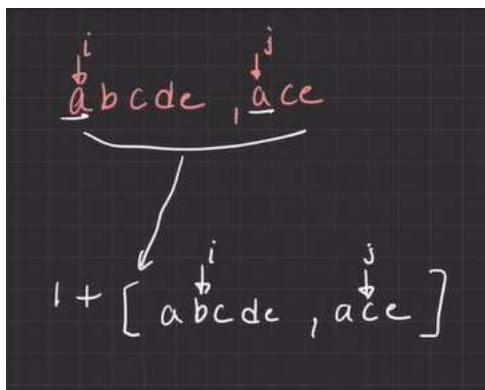 i j
abcde , ace
i j
1 + [ abcde , ace ]